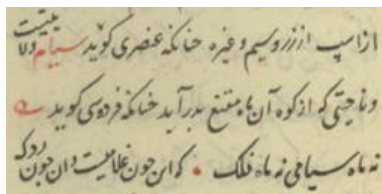 از اسپ از زر و سیم و غیره چنانکه عنصری گوید سیام ولا
و ناحیتی که از کوه آن ماه مقنع بدر آید چنانکه فردوسی گوید
نه ماه سیامی نه ماه فلک که این چون غلامیست و ان چون